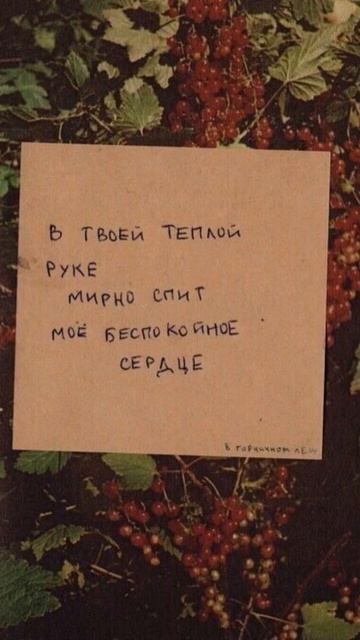 в твоей теплой
руке
мирно спит
моё беспокойное
сердце
в горчичном